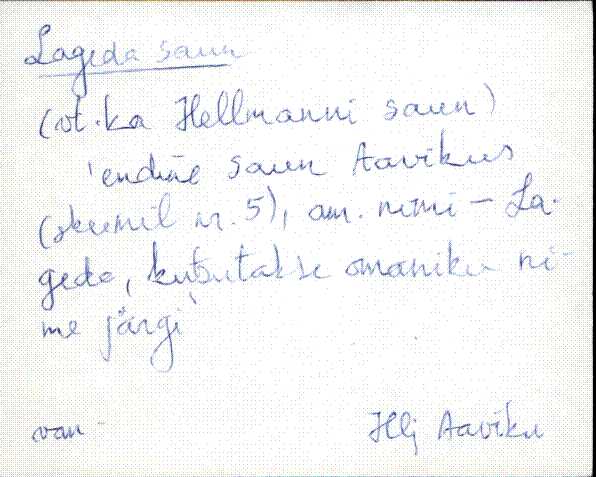 Lageda saun
(vt. ka Hellmanni saun)
'endine saun Aavikus
(skeemil nr. 5), am. nimi – La-
geda, kutsutakse omaniku ni-
me järgi'
van. Hlj Aaviku